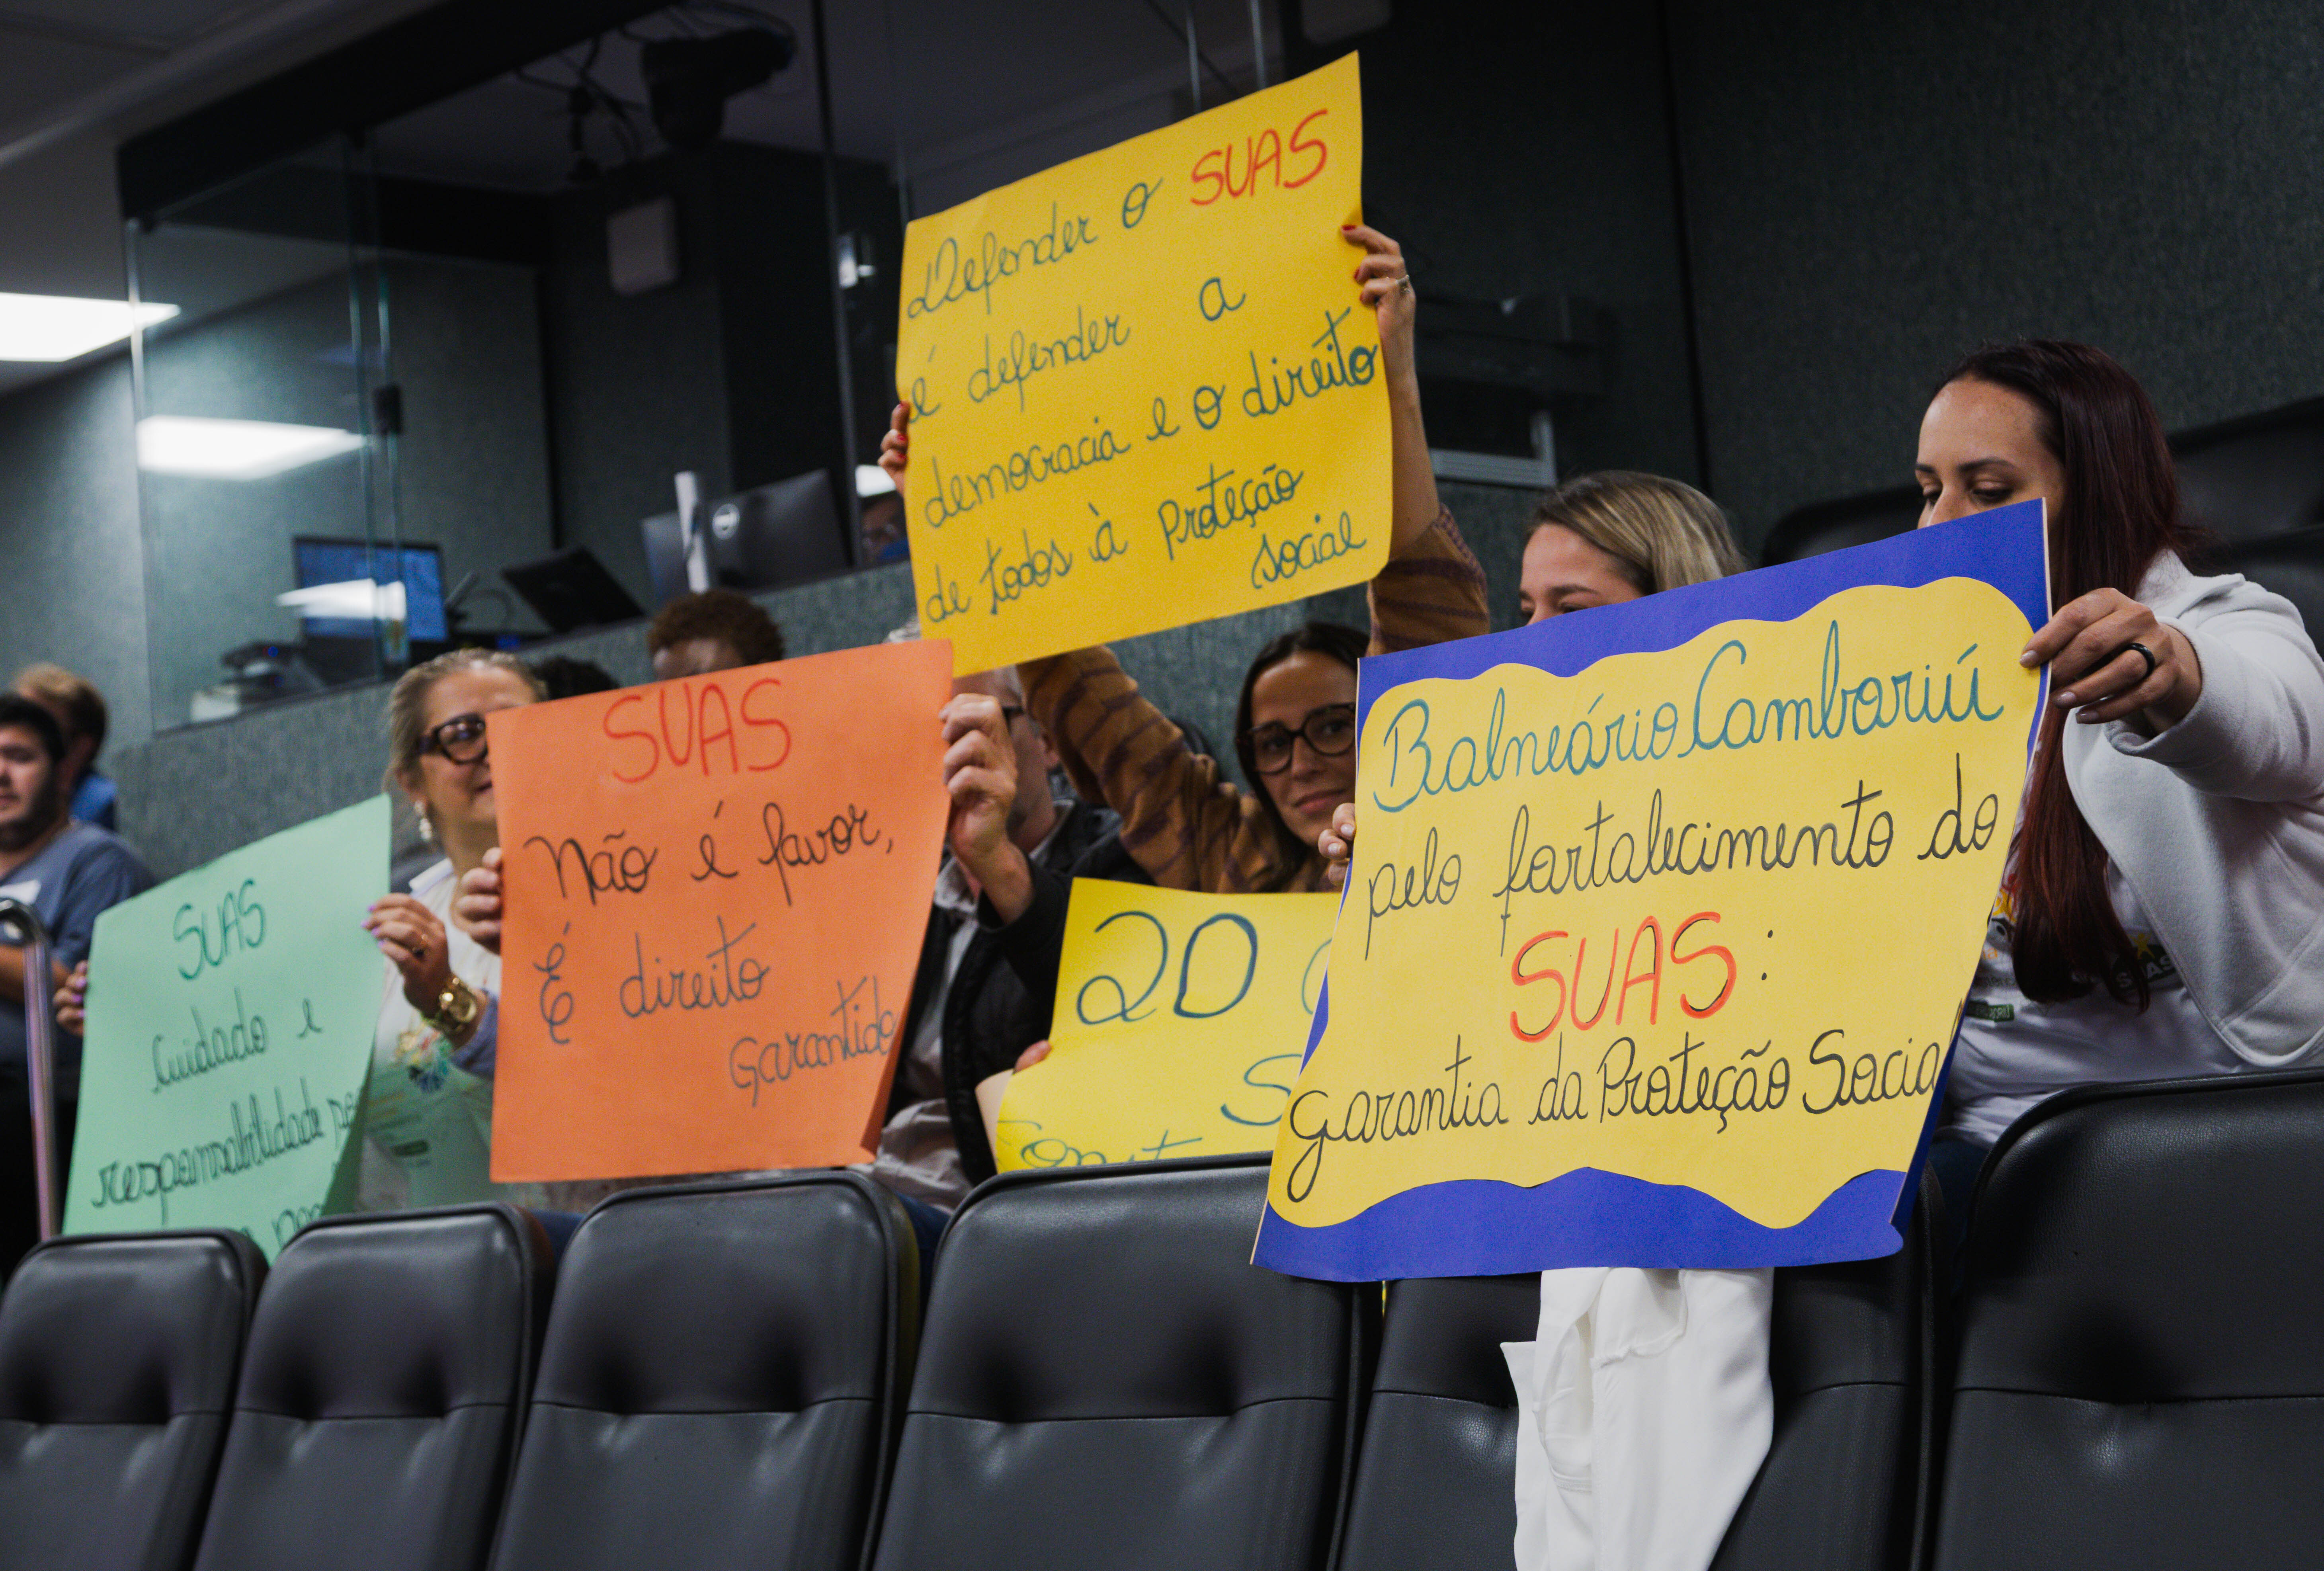 Defender o SUAS
é defender a
democracia e o direito
de todos à Proteção
social
SUAS
Não é favor,
É direito
Garantido
SUAS
Cuidado e
responsabilidade
20
Balneário Camboriú
pelo fortalecimento do
SUAS:
garantia da Proteção Socia